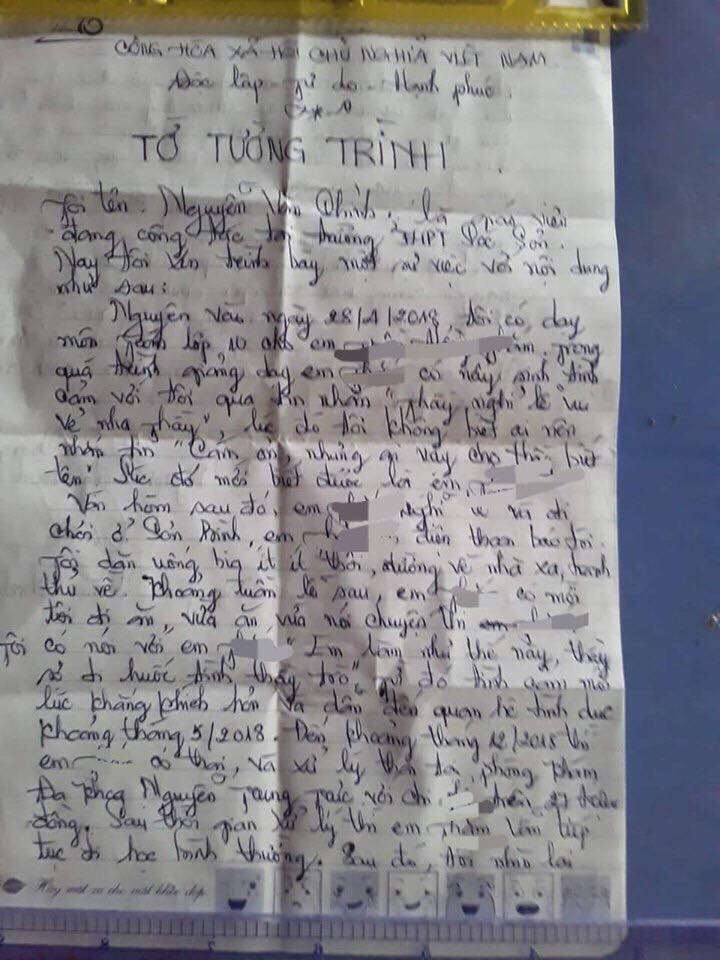 CỘNG HÒA XÃ HỘI CHỦ NGHĨA VIỆT NAM
Độc lập tự do Hạnh phúc.
TỜ TƯỜNG TRÌNH
Tôi tên: Nguyễn Văn Chính, là giáo viên
đang công tác tại trường THPT
Nay tôi xin trình bày một sự việc với nội dung
như sau:
Nguyên vào ngày 28/4/2018, tôi có dạy
môn lớp 10 cho em trong
quá trình giảng dạy em có nảy sinh tình
cảm với tôi qua tin nhắn "thầy nghỉ lễ vui
vẻ nha thầy", lúc đó tôi không biết ai nên
nhắn tin "Cảm ơn, nhưng ai vậy cho thầy biết
tên" lúc đó mới biết được là em
Vào hôm sau đó, em nghỉ và đi
chơi ở Sơn Bình, em điện thoại báo tôi.
Tôi dặn uống bia ít ít thôi, đường về nhà xa, tranh
thủ về. Khoảng tuần lễ sau, em có mời
tôi đi ăn, vừa ăn vừa nói chuyện thì
Tôi có nói với em "Em làm như thế này, thầy
sợ đi trò" từ đó tình cảm mỗi
lúc khăng khít hơn và dẫn đến quan hệ tình dục
khoảng tháng 5/2018. Đến khoảng tháng 12/2018 thì
em có thai, và xử lý thai tại phòng khám
Đa khoa Nguyễn Trung Trực với chi trên 27 triệu
đồng. Sau thời gian xử lý thì em tiếp
tục đi học bình thường. Sau đó, tôi nhớ lại